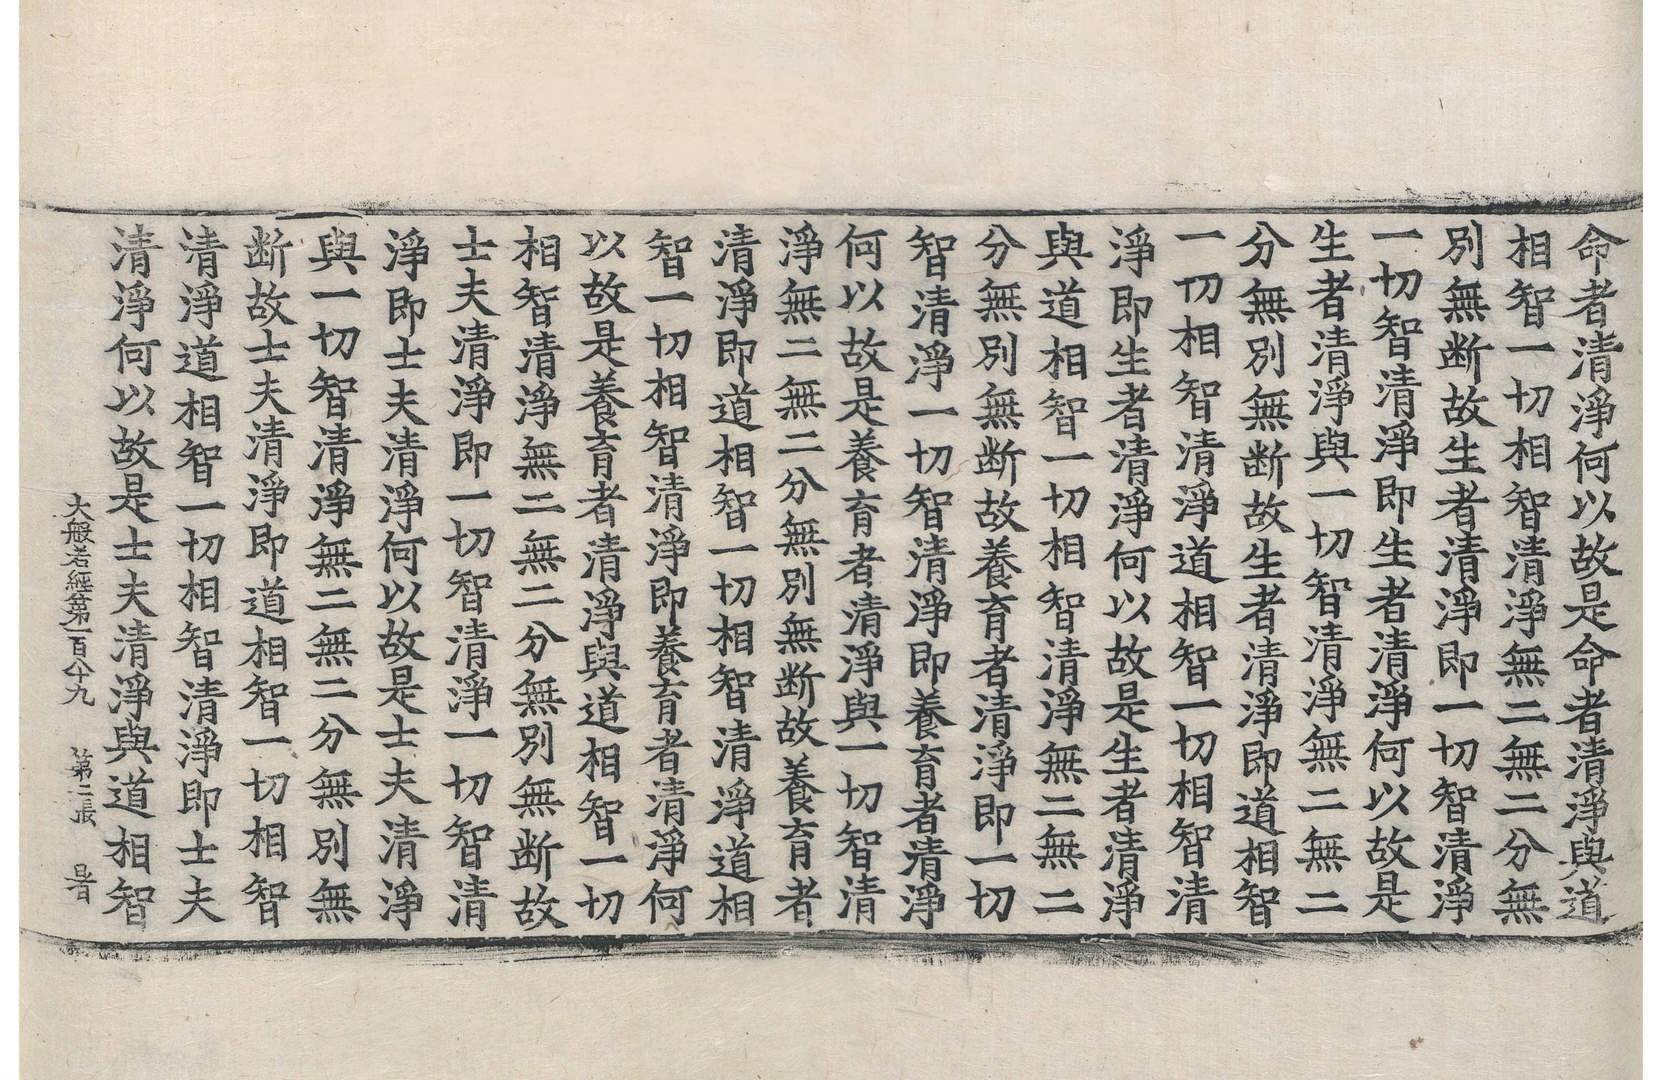 命者清淨何以故是命者清淨與道
相智一切相智清淨無二無二分無
別無断故生者清淨即一切智清淨
一切智清淨即生者清淨何以故是
生者清淨與一切智清淨無二無二
分無別無断故生者清淨即道相智
一切相智清淨道相智一切相智清
淨即生者清淨何以故是生者清淨
與道相智一切相智清淨無二無二
分無別無断故養育者清淨即一切
智清淨一切智清淨即養育者清淨
何以故是養育者清淨與一切智清
淨無二無二分無別無断故養育者
清淨即道相智一切相智清淨道相
智一切相智清淨即養育者清淨何
以故是養育者清淨與道相智一切
相智清淨無二無二分無別無断故
士夫清淨即一切智清淨一切智清
淨即士夫清淨何以故是士夫清淨
與一切智清淨無二無二分無別無
断故士夫清淨即道相智一切相智
清淨道相智一切相智清淨即士夫
清淨何以故是士夫清淨與道相智
大般若經第一百八十九 第二張 暑